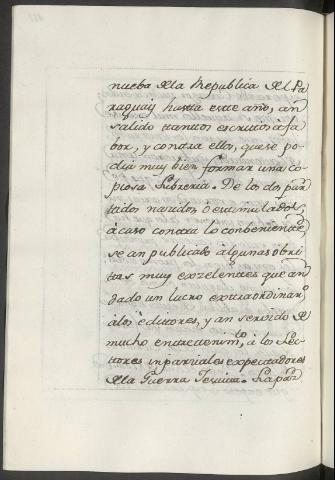 nueba de la Republica del Pa
raguai hasta este año, an
salido tantos escritos á fa
bor, y contra ellos, que se po
dia muy bien formar una co
piosa Libreria. De los dos par
tidos nacidos ó estimulados
acaso contra lo conbeniente
se an publicado algunas obri
tas muy exzelentes que an
dado un lucro extraordinarº
á los èditores, y an servido de
mucho entretenimto à los Lec
tores inparziales expectadores
de la Guerra Jesuitta. La par